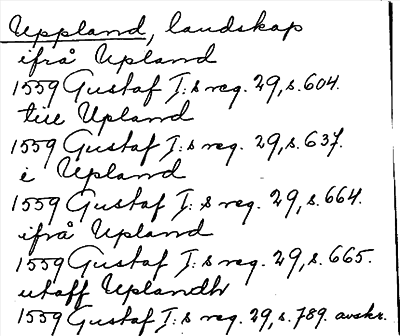 Uppland, landskap
ifrå Upland
1559 Gustaf I:s reg. 29, s. 604.
till Upland
1559 Gustaf I:s reg. 29, s. 637.
i Upland
1559 Gustaf I:s reg. 29, s. 664.
ifrå Upland
1559 Gustaf I:s reg. 29, s. 665.
utaff Uplandh
1559 Gustaf I:s reg. 29, s. 789. avskr.